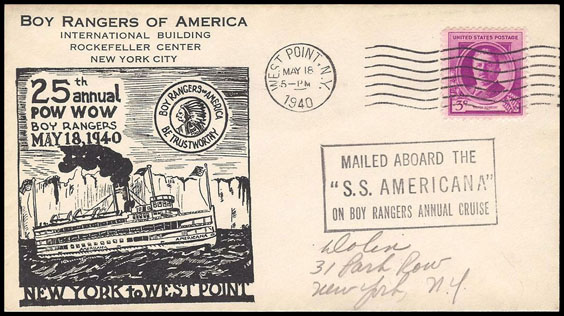 BOY RANGERS OF AMERICA
INTERNATIONAL BUILDING
ROCKEFELLER CENTER
NEW YORK CITY
25th annual
POW WOW
BOY RANGERS
MAY 18, 1940
BOY RANGERS OF AMERICA
BE TRUSTWORTHY
AMERICANA
NEW YORK to WEST POINT
WEST POINT, N.Y.
MAY 18
5-PM
1940
UNITED STATES POSTAGE
3¢
MAILED ABOARD THE
"S.S. AMERICANA"
ON BOY RANGERS ANNUAL CRUISE
Dolin
31 Park Row
New York, N.Y.